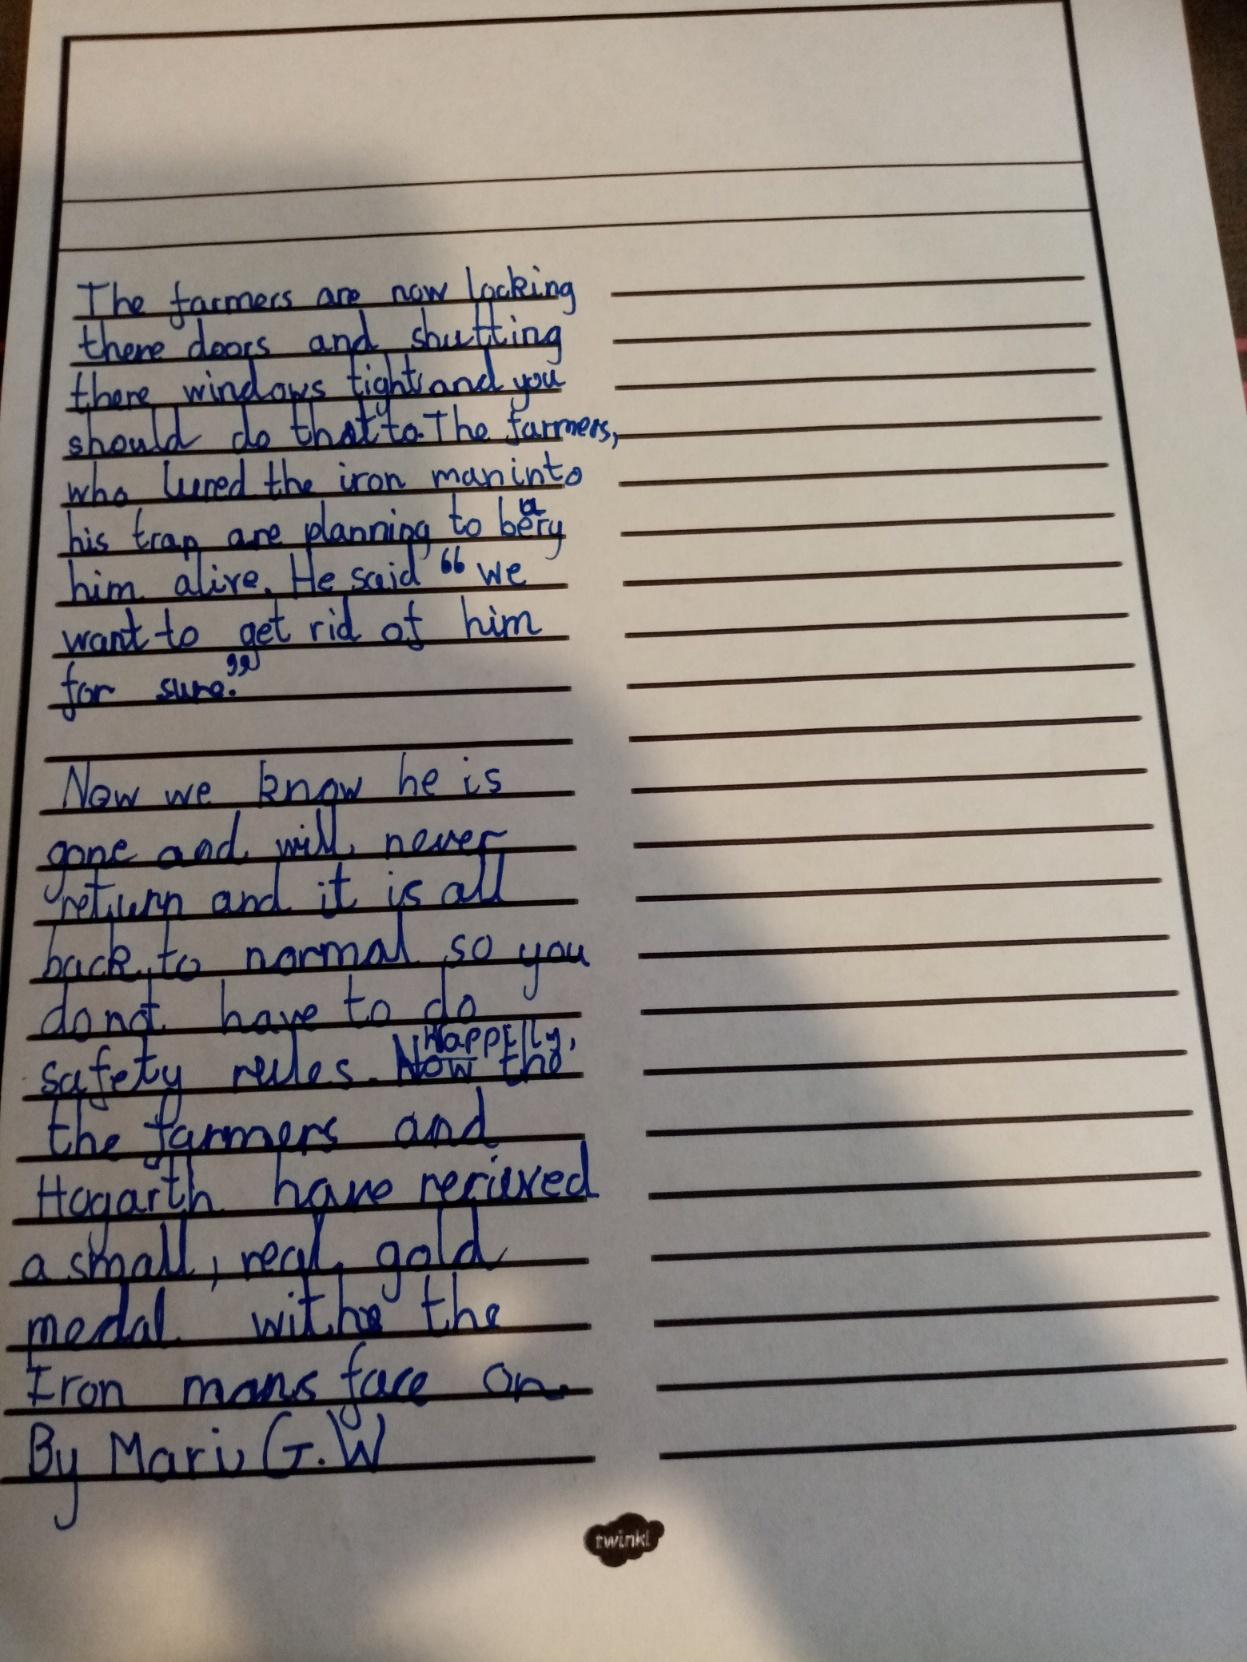 The farmers are now locking
there doors and shutting
there windows tight and you
should do that to. The farmers,
who lured the iron man into
his trap are planning to bery
him alive. He said “ we
want to get rid of him
for sure.”
Now we know he is
gone and will never
return and it is all
back to normal so you
donot have to do
safety rules. Happelly,
the farmers and
Hogarth have recieved
a small, real gold
medal withe the
Iron mans face on.
By Mari G.W
twinkl